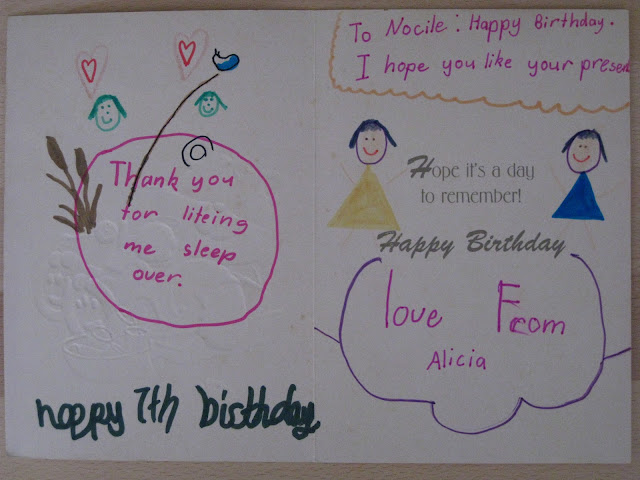 Thank you
for liteing
me sleep
over.
happy 7th birthday
To Nocile: Happy Birthday.
I hope you like your presen
Hope it's a day
to remember!
Happy Birthday
love From
Alicia